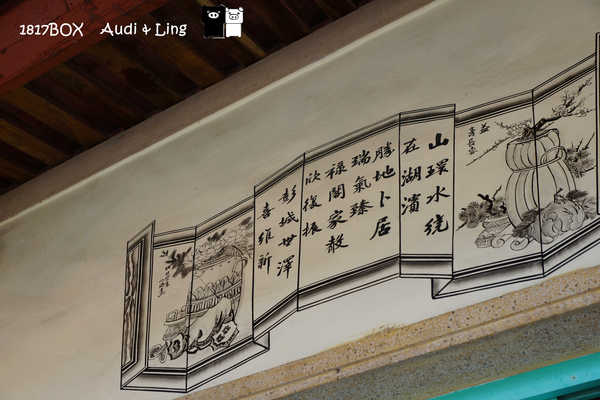 1817BOX Audi & Ling
山環水繞
在湖濱
勝地卜居
瑞氣臻
祿閣家聲
欣復振
彭城世澤
喜維新